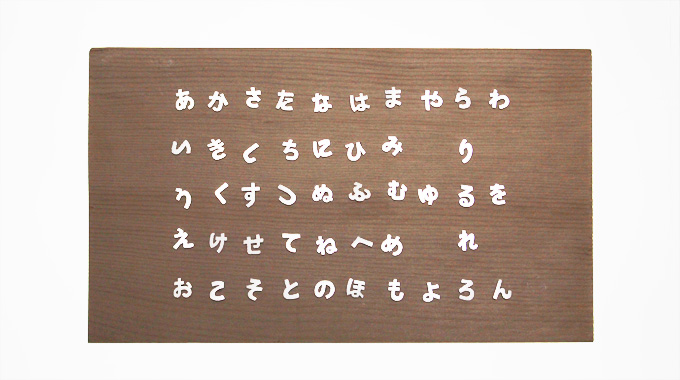 あかさたなはまやらわ
いきしちにひみり
うくすつぬふむゆるを
えけせてねへめれ
おこそとのほもよろん